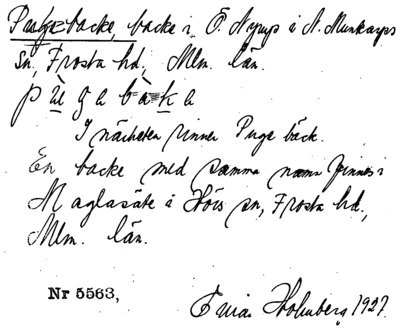 Pugebacke, backe i Ö. Nyrup i N. Munkarps
sn, Frosta hd, Mlm. län.
p ù g a b à k a
I närheten rinner Puge bäck.
En backe med samma namn finnes i
Maglasäte i Hörs sn, Frosta hd,
Mlm. län.
Nr 5563,
Holmberg 1927.